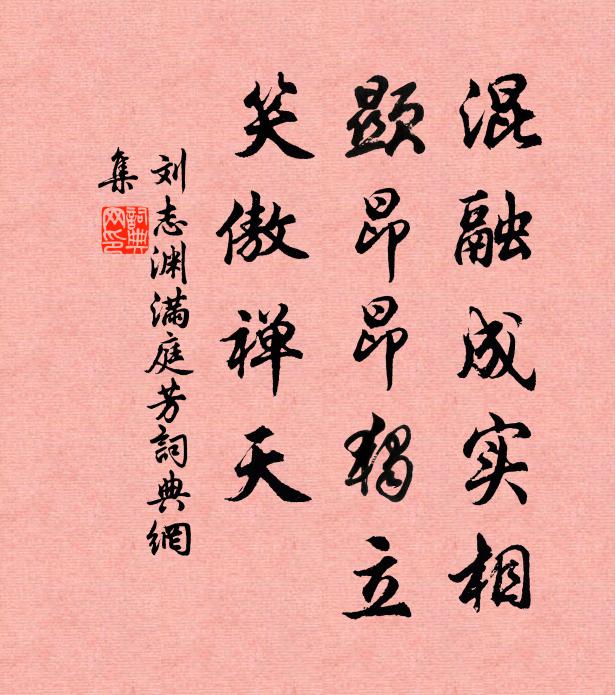 混融成实相
顕昂昂獨立
笑傲禅天
刘志渊满庭芳詞典網
集
詞典网印